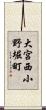 大宮西小
野堀町